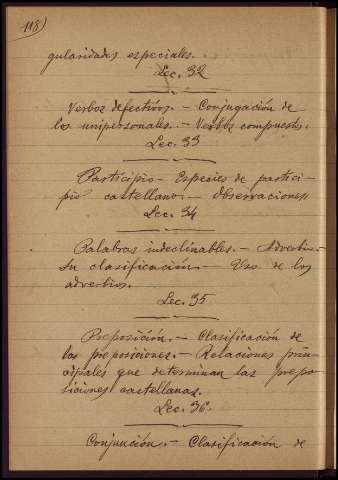 118)
gularidades especiales.
Lec. 32
Verbos defectivos. - Conjugación de
los unipersonales. - Verbos compuestos.
Lec. 33
Participio - Especies de partici-
pio castellano. - Observaciones
Lec. 34
Palabras indeclinables. - Adverbio. -
Su clasificación. - Uso de los
adverbios.
Lec. 35
Preposición. - Clasificación de
las preposiciones. - Relaciones prin-
cipales que determinan las prepo-
siciones castellanas.
Lec. 36.
Conjunción. - Clasificación de